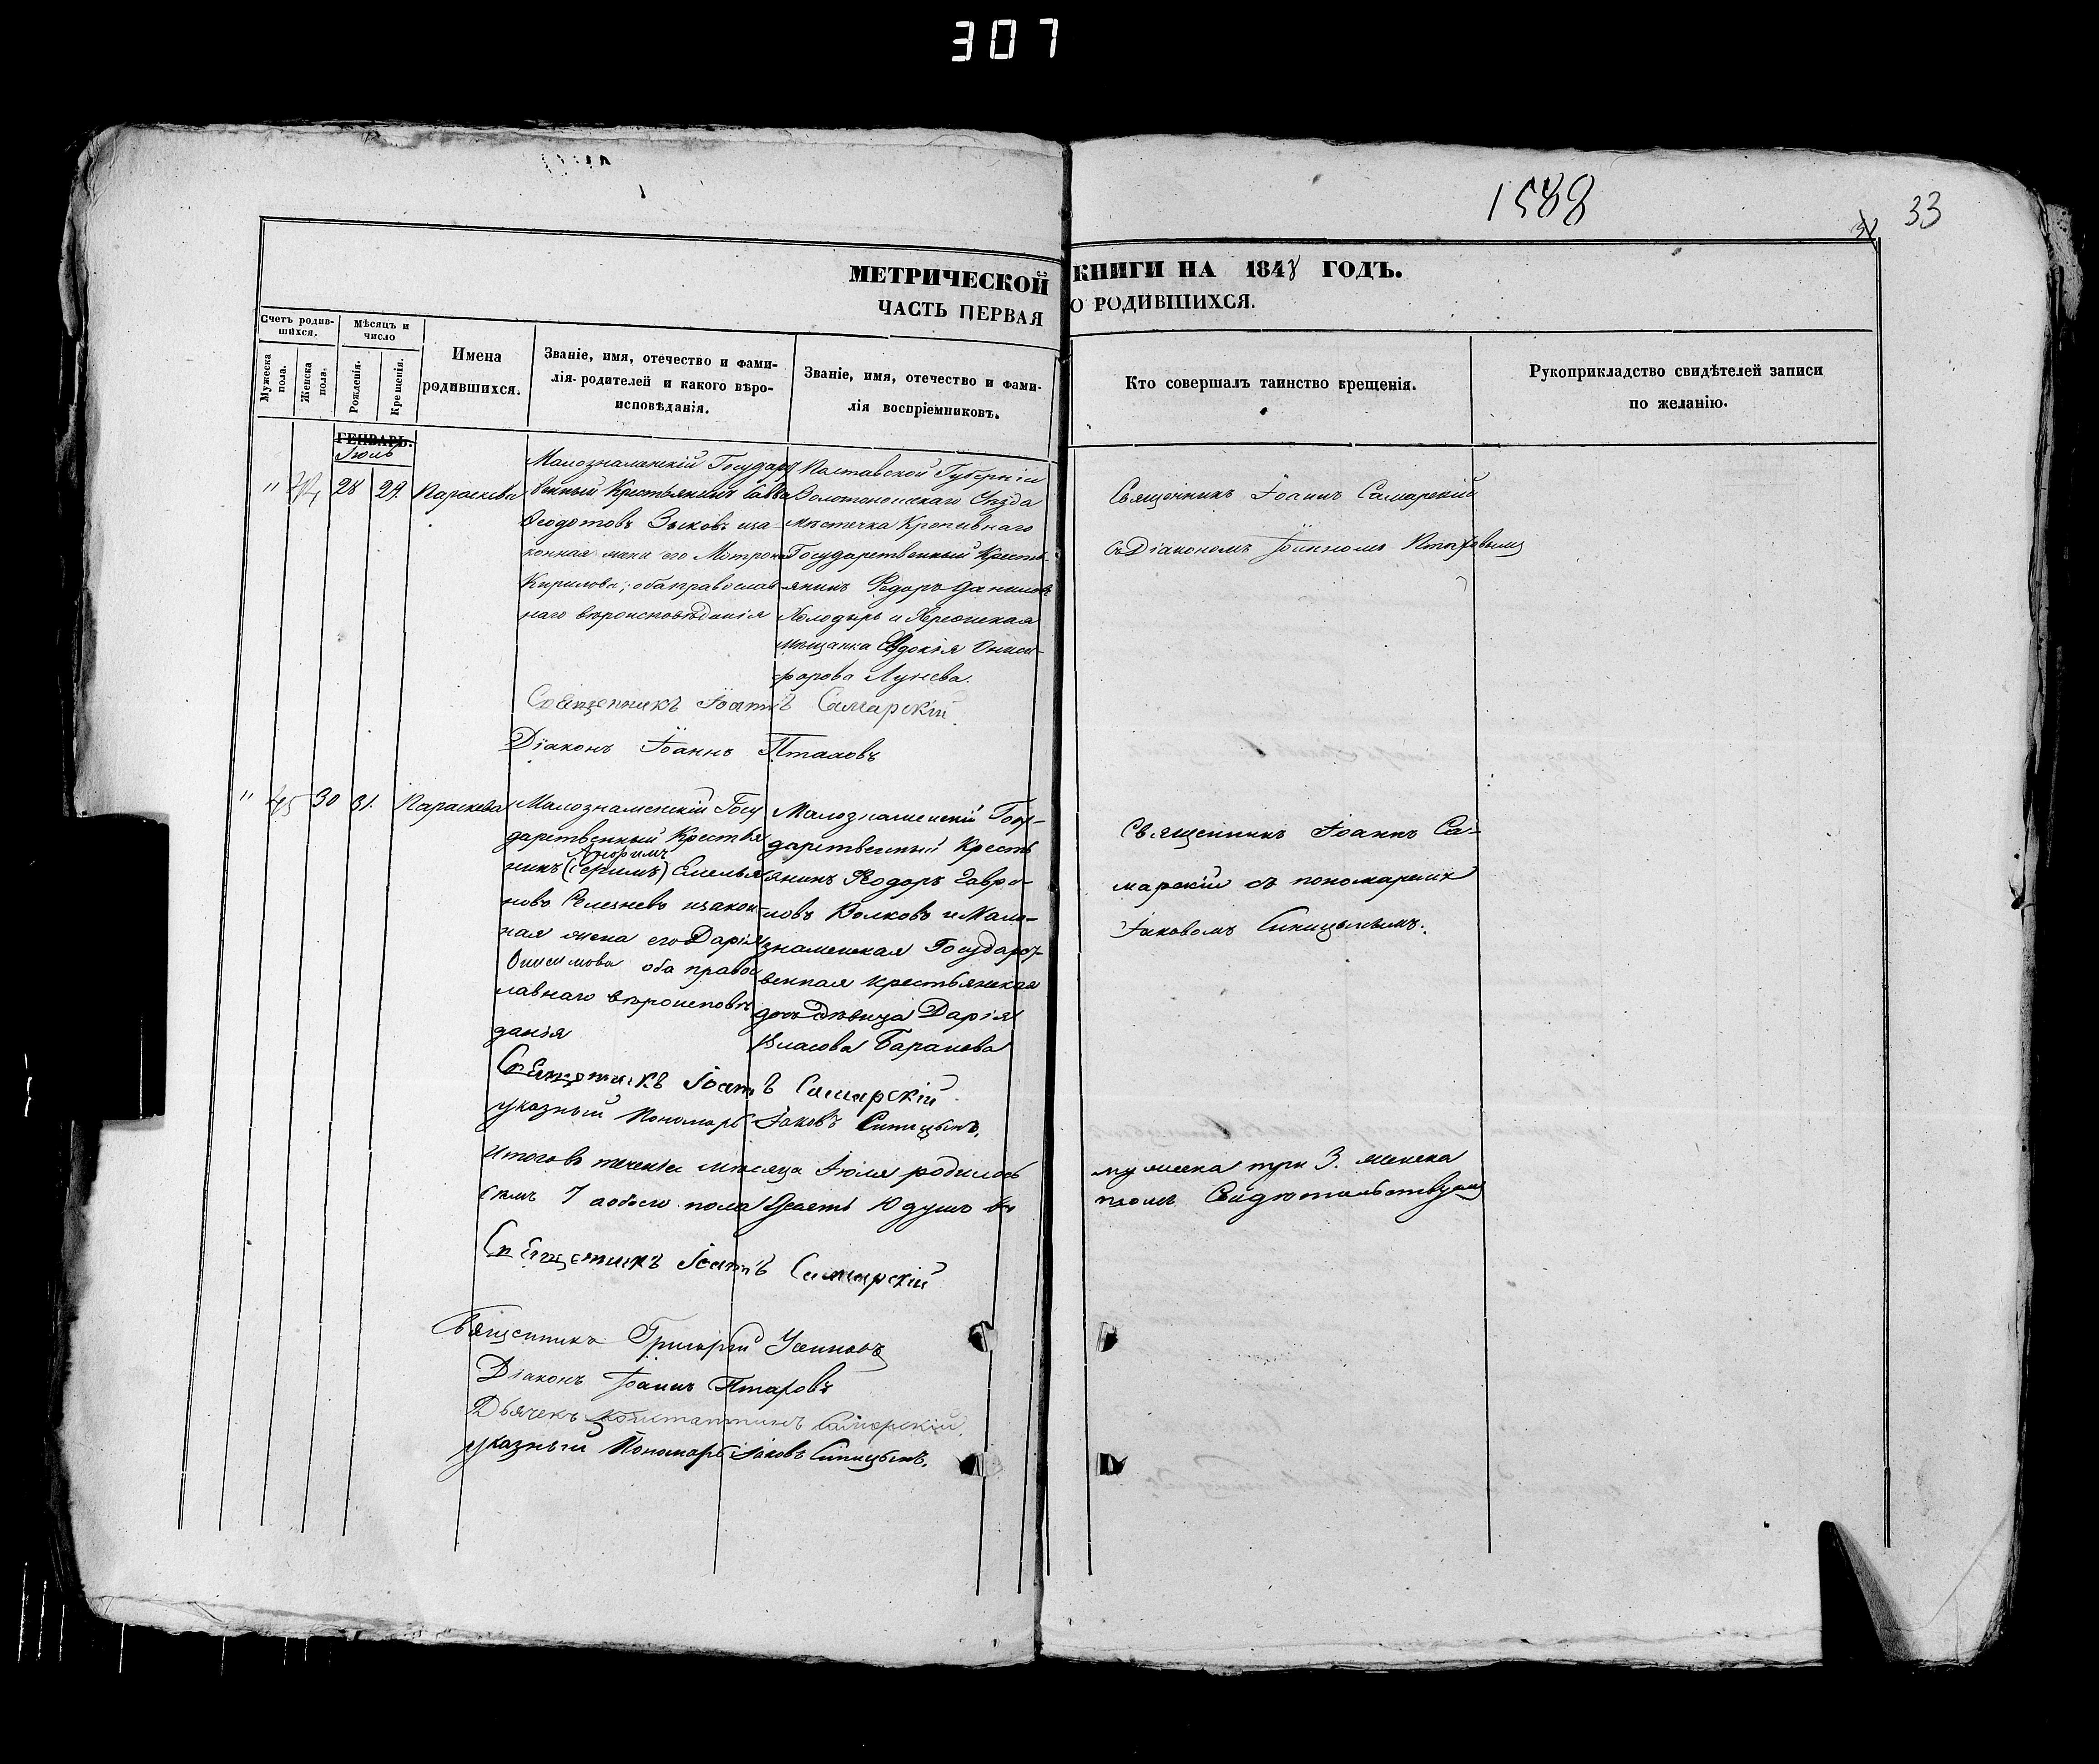 307
1588
33
МЕТРИЧЕСКОЙ КНИГИ НА 1848 ГОДЪ.
ЧАСТЬ ПЕРВАЯ О РОДИВШИХСЯ.
Счетъ родив-
шихся.
Мужеска пола.
Женска пола.
Мѣсяцъ и
число
Рожденія.
Крещенія.
Имена
родившихся.
Званіе, имя, отечество и фами-
лія родителей и какого вѣро-
исповѣданія.
Званіе, имя, отечество и фами-
лія воспріемниковъ.
Кто совершалъ таинство крещенія.
Рукоприкладство свидѣтелей записи
по желанію.
ГЕНВАРЬ.
Іюль
" 44 28 29. Параскева
Малознаменскій Государст
венный Крестьянинъ Савва
Ѳеодотовъ Зыковъ иза-
конная жена его Матрона
Кирилова; оба православ
наго вѣроисповѣданія
Полтавской Губерніи
Золотоношскаго Уѣзда
мѣстечка Кропивнаго
Государственный Кресть-
янинъ Ѳедоръ Даниловъ
Холодырь и Херсонская
мѣщанка Евдокія Ониси-
форова Лунева.
Священникъ Іоаннъ Самарскій
съ Діакономъ Іоанномъ Птаховымъ
Священникъ Іоаннъ Самарскій.
Діаконъ Іоаннъ Птаховъ
" 45 30 31. Параскева
Малознаменскій Госу
дарственный Крестья
нинъ
Емелья
новъ Селезневъ изакон-
ная жена его Дарія
Онисимова оба правос
лавнаго вѣроисповѣ
данія
Малознаменскій Госу-
дарственный Кресть
янинъ Ѳеодоръ Гаври-
ловъ Волковъ и Мало-
знаменская Государст-
венная крестьянская
дочь дѣвица Дарія
Власова Баранова
Священникъ Іоаннъ Са-
марскій съ пономаремъ
Іаковомъ Синицынымъ.
Священникъ Іоаннъ Самарскій.
указный Пономарь Іаковъ Синицынъ.
Итого въ теченіи мѣсяца Іюля родилось мужеска три 3. женска
семь 7 а обоего пола Десять 10 душъ въ томъ Свидѣтельствуемъ
Священникъ Іоаннъ Самарскій
Священникъ Григорій Усиновъ
Діаконъ Іоаннъ Птаховъ
Дьячекъ Константинъ Самарскій.
указный Пономарь Іаковъ Синицынъ.